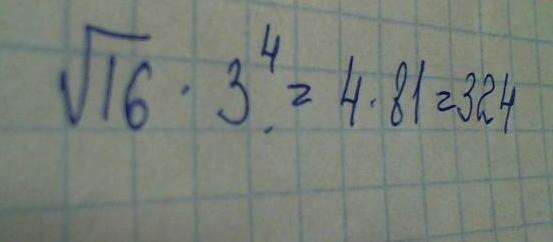 √16 · 3⁴ = 4 · 81 = 324